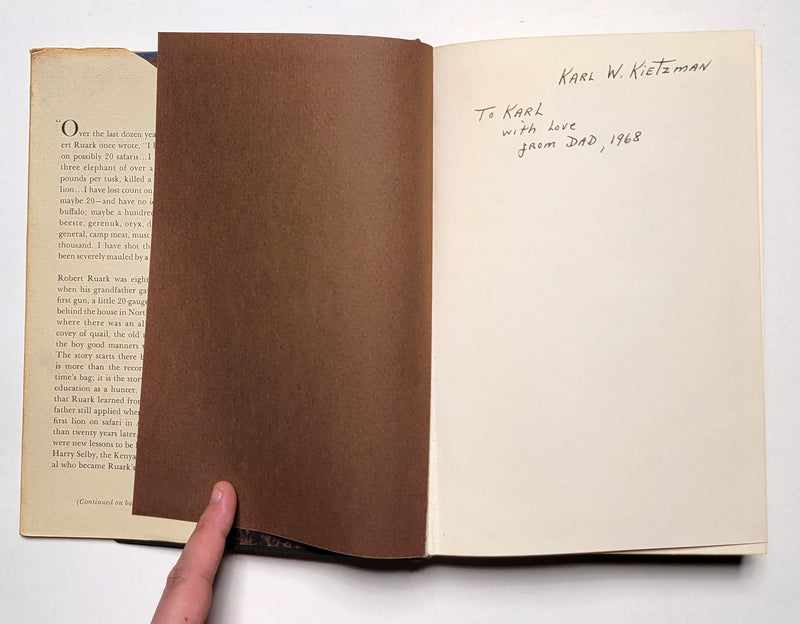 “Over the last dozen yea
ert Ruark once wrote, “I h
on possibly 20 safaris...I
three elephant of over a
pounds per tusk, killed a
lion...I have lost count on
maybe 20—and have no i
buffalo; maybe a hundred
beeste, gerenuk, oryx, d
general, camp meat, must
thousand. I have shot th
been severely mauled by a
Robert Ruark was eight
when his grandfather ga
first gun, a little 20-gauge
behind the house in Nort
where there was an al
covey of quail, the old
the boy good manners
The story starts there b
is more than the recor
time's bag; it is the stor
education as a hunter.
that Ruark learned from
father still applied when
first lion on safari in A
than twenty years later,
were new lessons to be
Harry Selby, the Kenya
al who became Ruark's
(Continued on ba
KARL W. KIETZMAN
TO KARL
with Love
from DAD, 1968